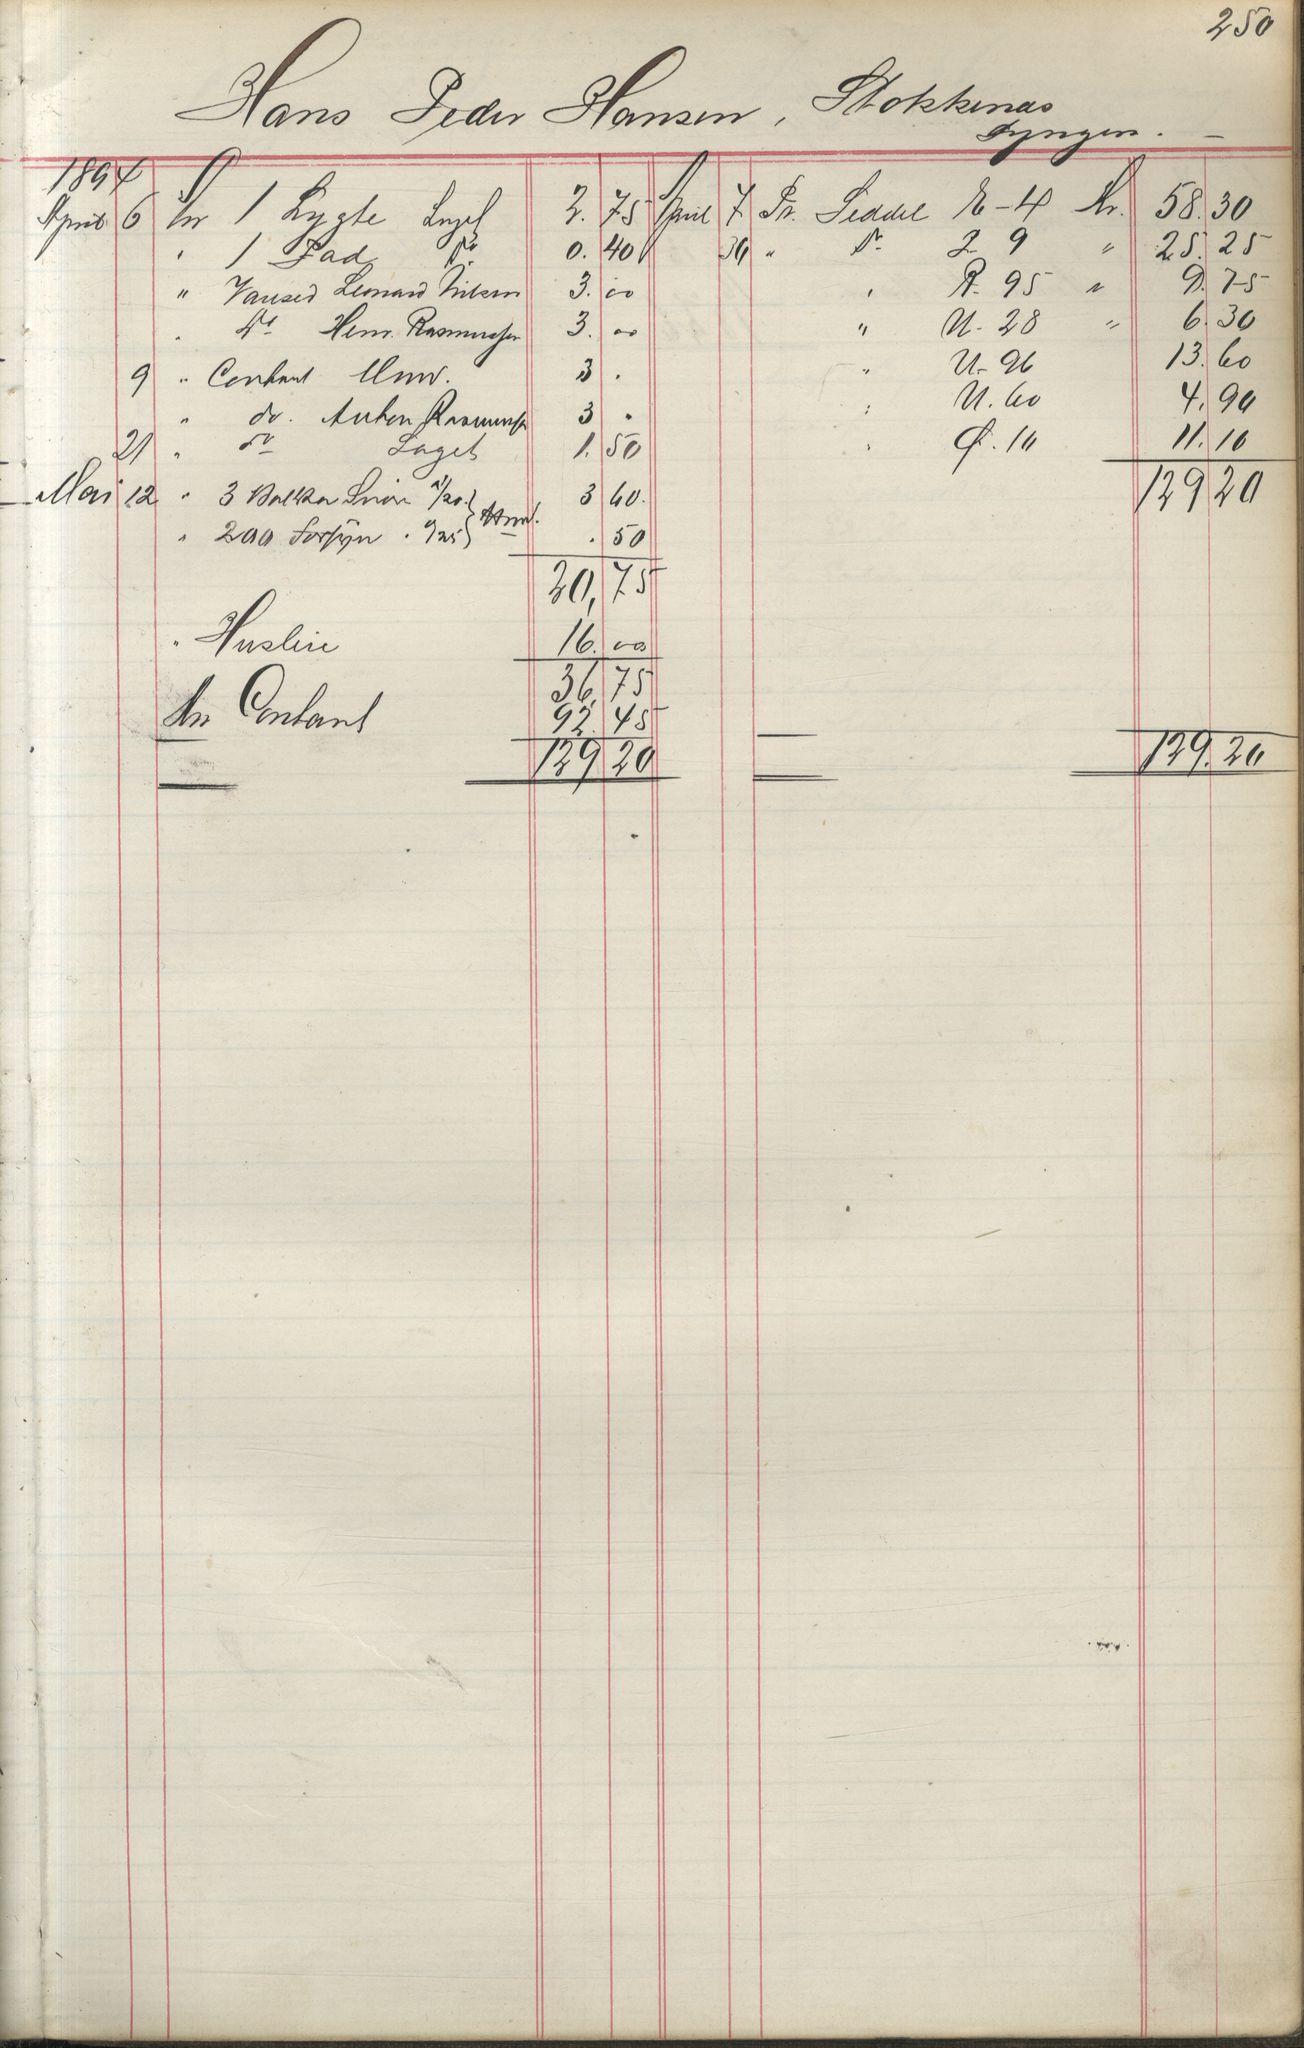 250
Hans Peder Hansen, Stokkenæs
Lyngen. —
1894
April 6 An 1 Lygte Laget 2. 75
" 1 Fad do 0. 40
" Vaused Leonard Nilsen 3. 00
" do Henr. Rasmussen 3. 00
9 " Contant Unv. 3 .
" do. Anton Rasmussen 3 .
21 " do Laget 1. 50
Mai 12 " 3 Snøre 1/20 3 60.
" 200 Forsyn . 9/25 . 50
20,75
" Husleie 16. 00
36,75
An Contant 92. 45
129 20
April 7 Pr. Seddel E-4 Kr. 58. 30
30 " do 2 9 " 25. 25
" R. 95 " 9. 75
" U- 28 " 6. 30
" U- 96 13. 60
" U. 60 4. 90
" . 10 11. 10
129 20
129. 20